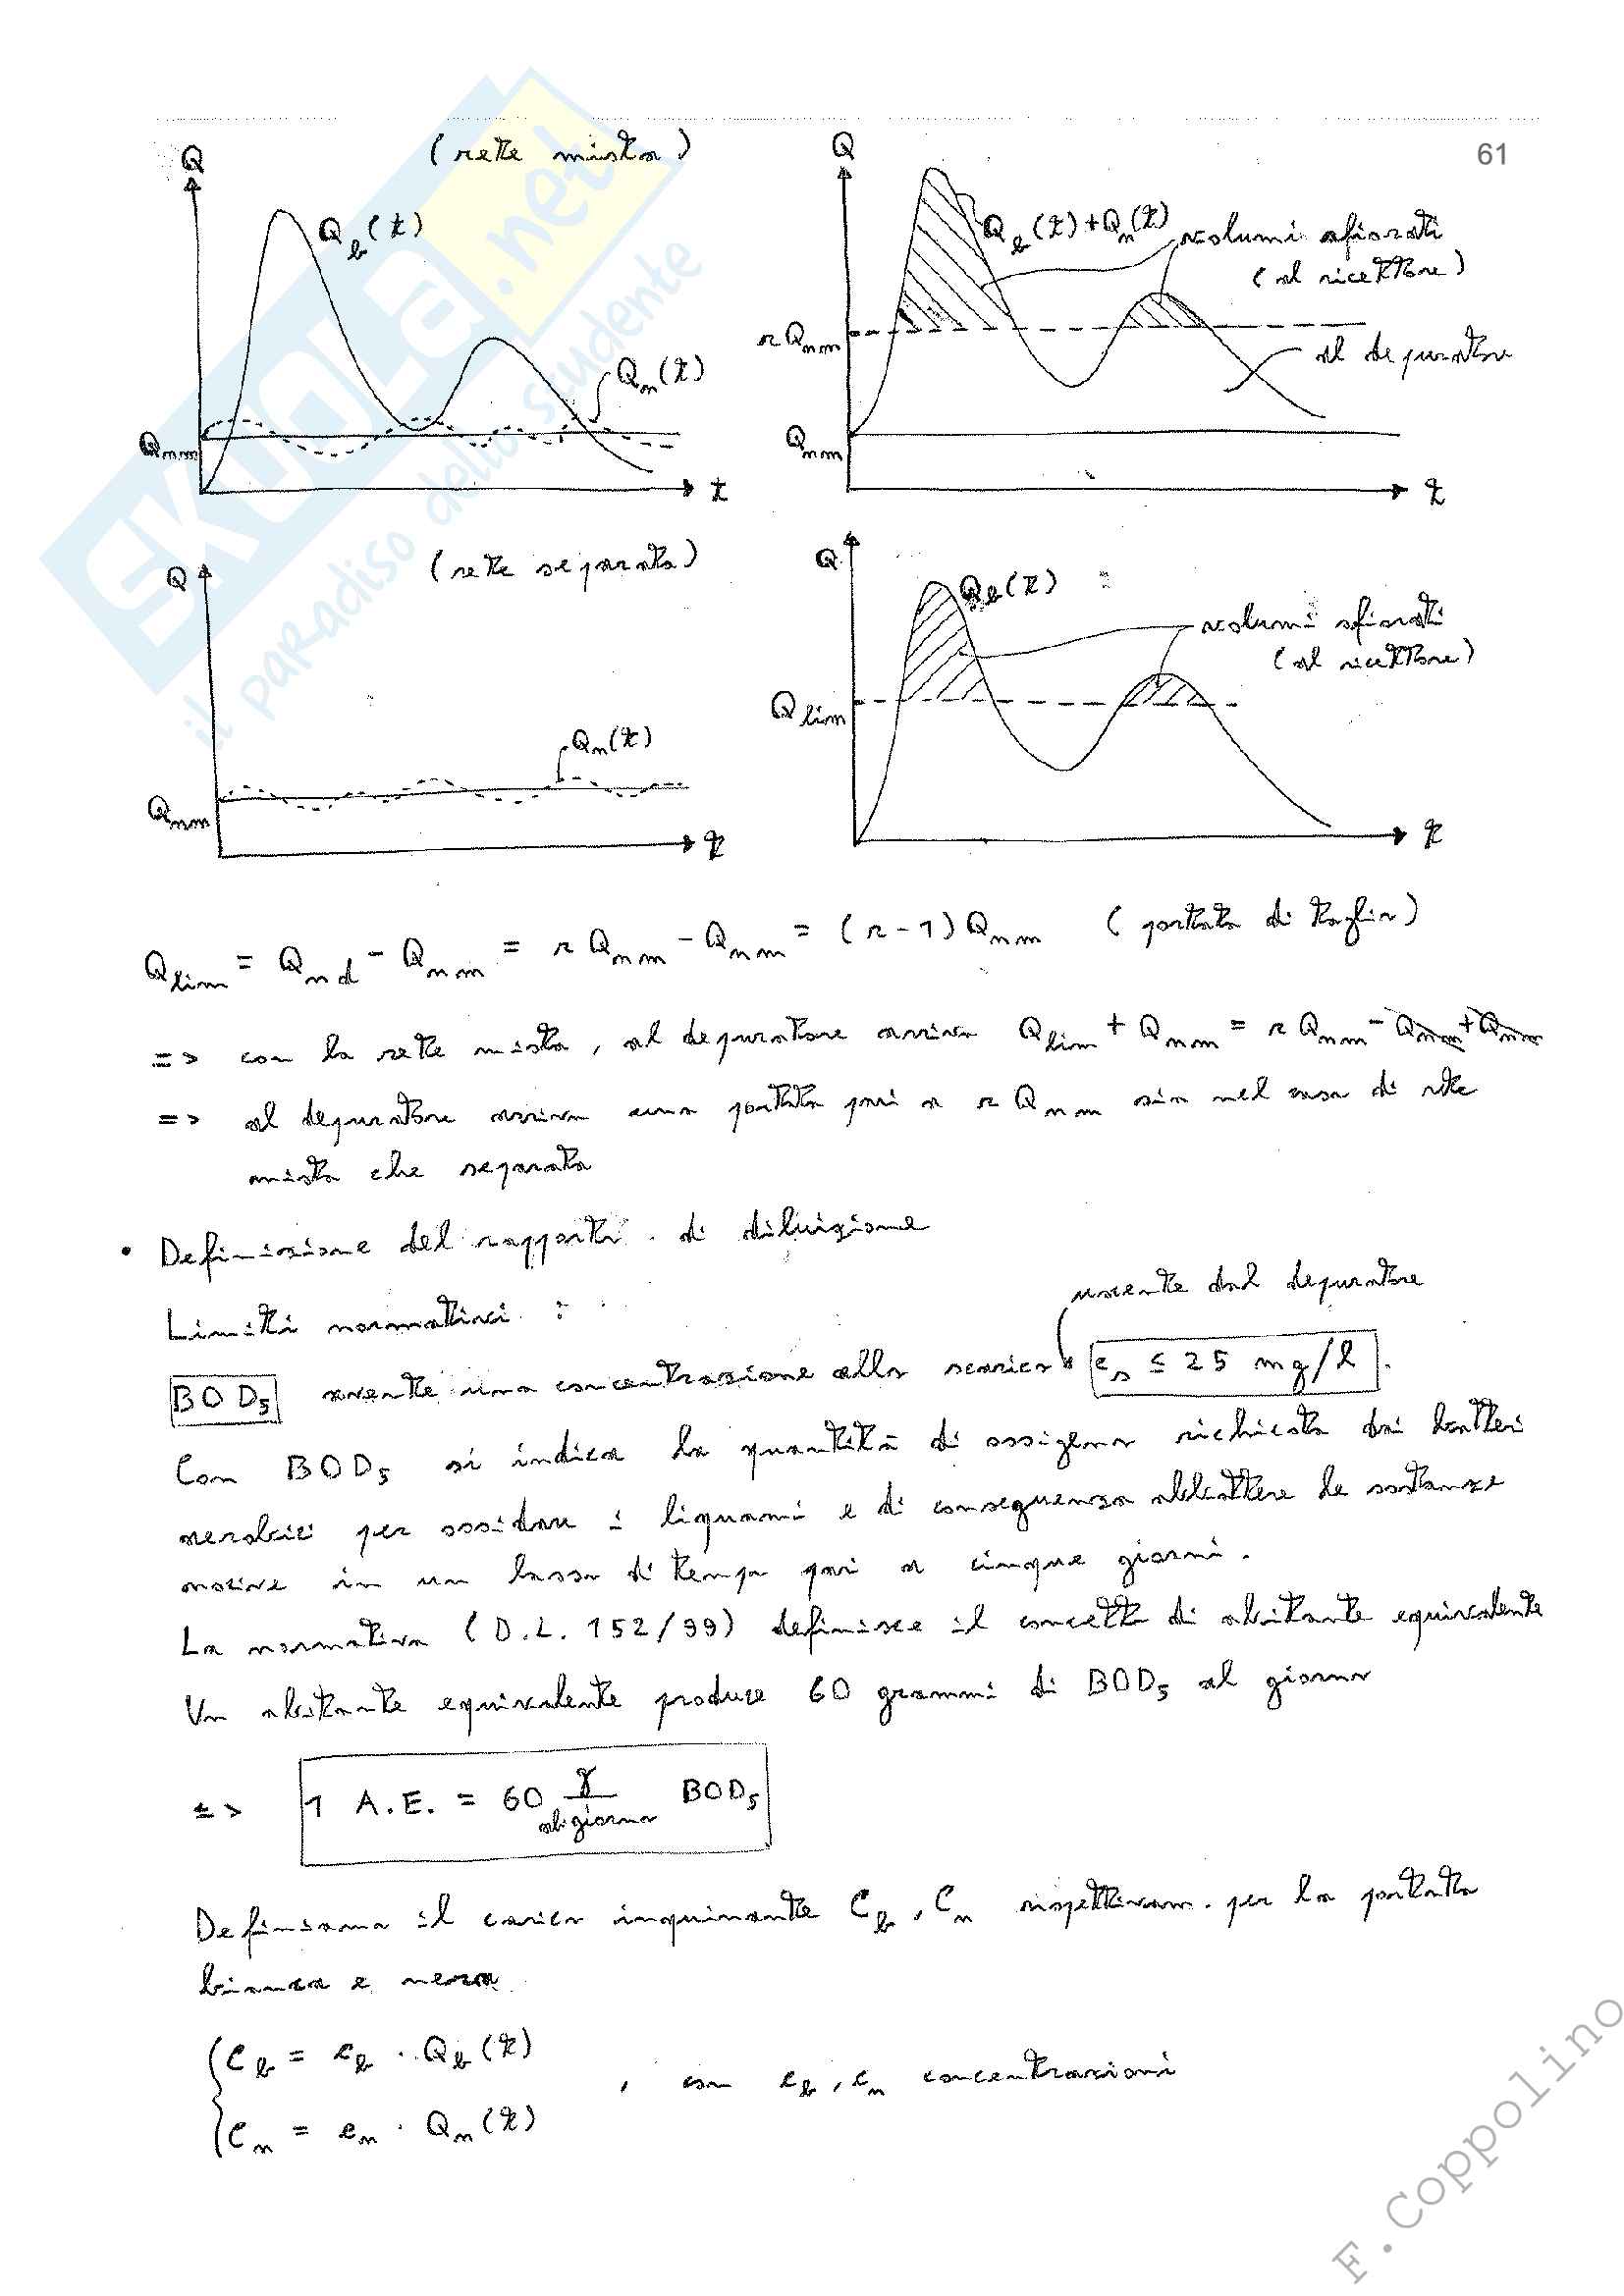 61
(rete mista)
Q
Q_b(t)
Q_n(t)
Q_nm
t
Q
Q_b(t)+Q_n(t)
volumi sfiorati
(al ricettore)
r Q_nm
al depuratore
Q_nm
t
(rete separata)
Q
Q_n(t)
Q_nm
t
Q
Q_b(t)
volumi sfiorati
(al ricettore)
Q_lim
t
Q_lim = Q_nd - Q_nm = r Q_nm - Q_nm = (r-1) Q_nm (portata di taglio)
=> con la rete mista, al depuratore arriva Q_lim + Q_nm = r Q_nm - Q_nm + Q_nm
=> al depuratore arriva una portata pari a r Q_nm sia nel caso di rete
mista che separata
• Definizione del rapporto di diluizione
uscente dal depuratore
Limiti normativi :
BOD5 avente una concentrazione allo scarico c_s ≤ 25 mg/l .
Con BOD5 si indica la quantità di ossigeno richiesta dai batteri
aerobici per ossidare i liquami e di conseguenza abbattere le sostanze
nocive in un lasso di tempo pari a cinque giorni.
La normativa (D.L. 152/99) definisce il concetto di abitante equivalente
Un abitante equivalente produce 60 grammi di BOD5 al giorno
=> 1 A.E. = 60 g/ab·giorno BOD5
Definiamo il carico inquinante C_b, C_n rispettivam. per la portata
bianca e nera
C_b = c_b · Q_b(t)
, con c_b, c_n concentrazioni
C_n = c_n · Q_n(t)
SKUOLA.net
il paradiso dello studente
F. Coppolino